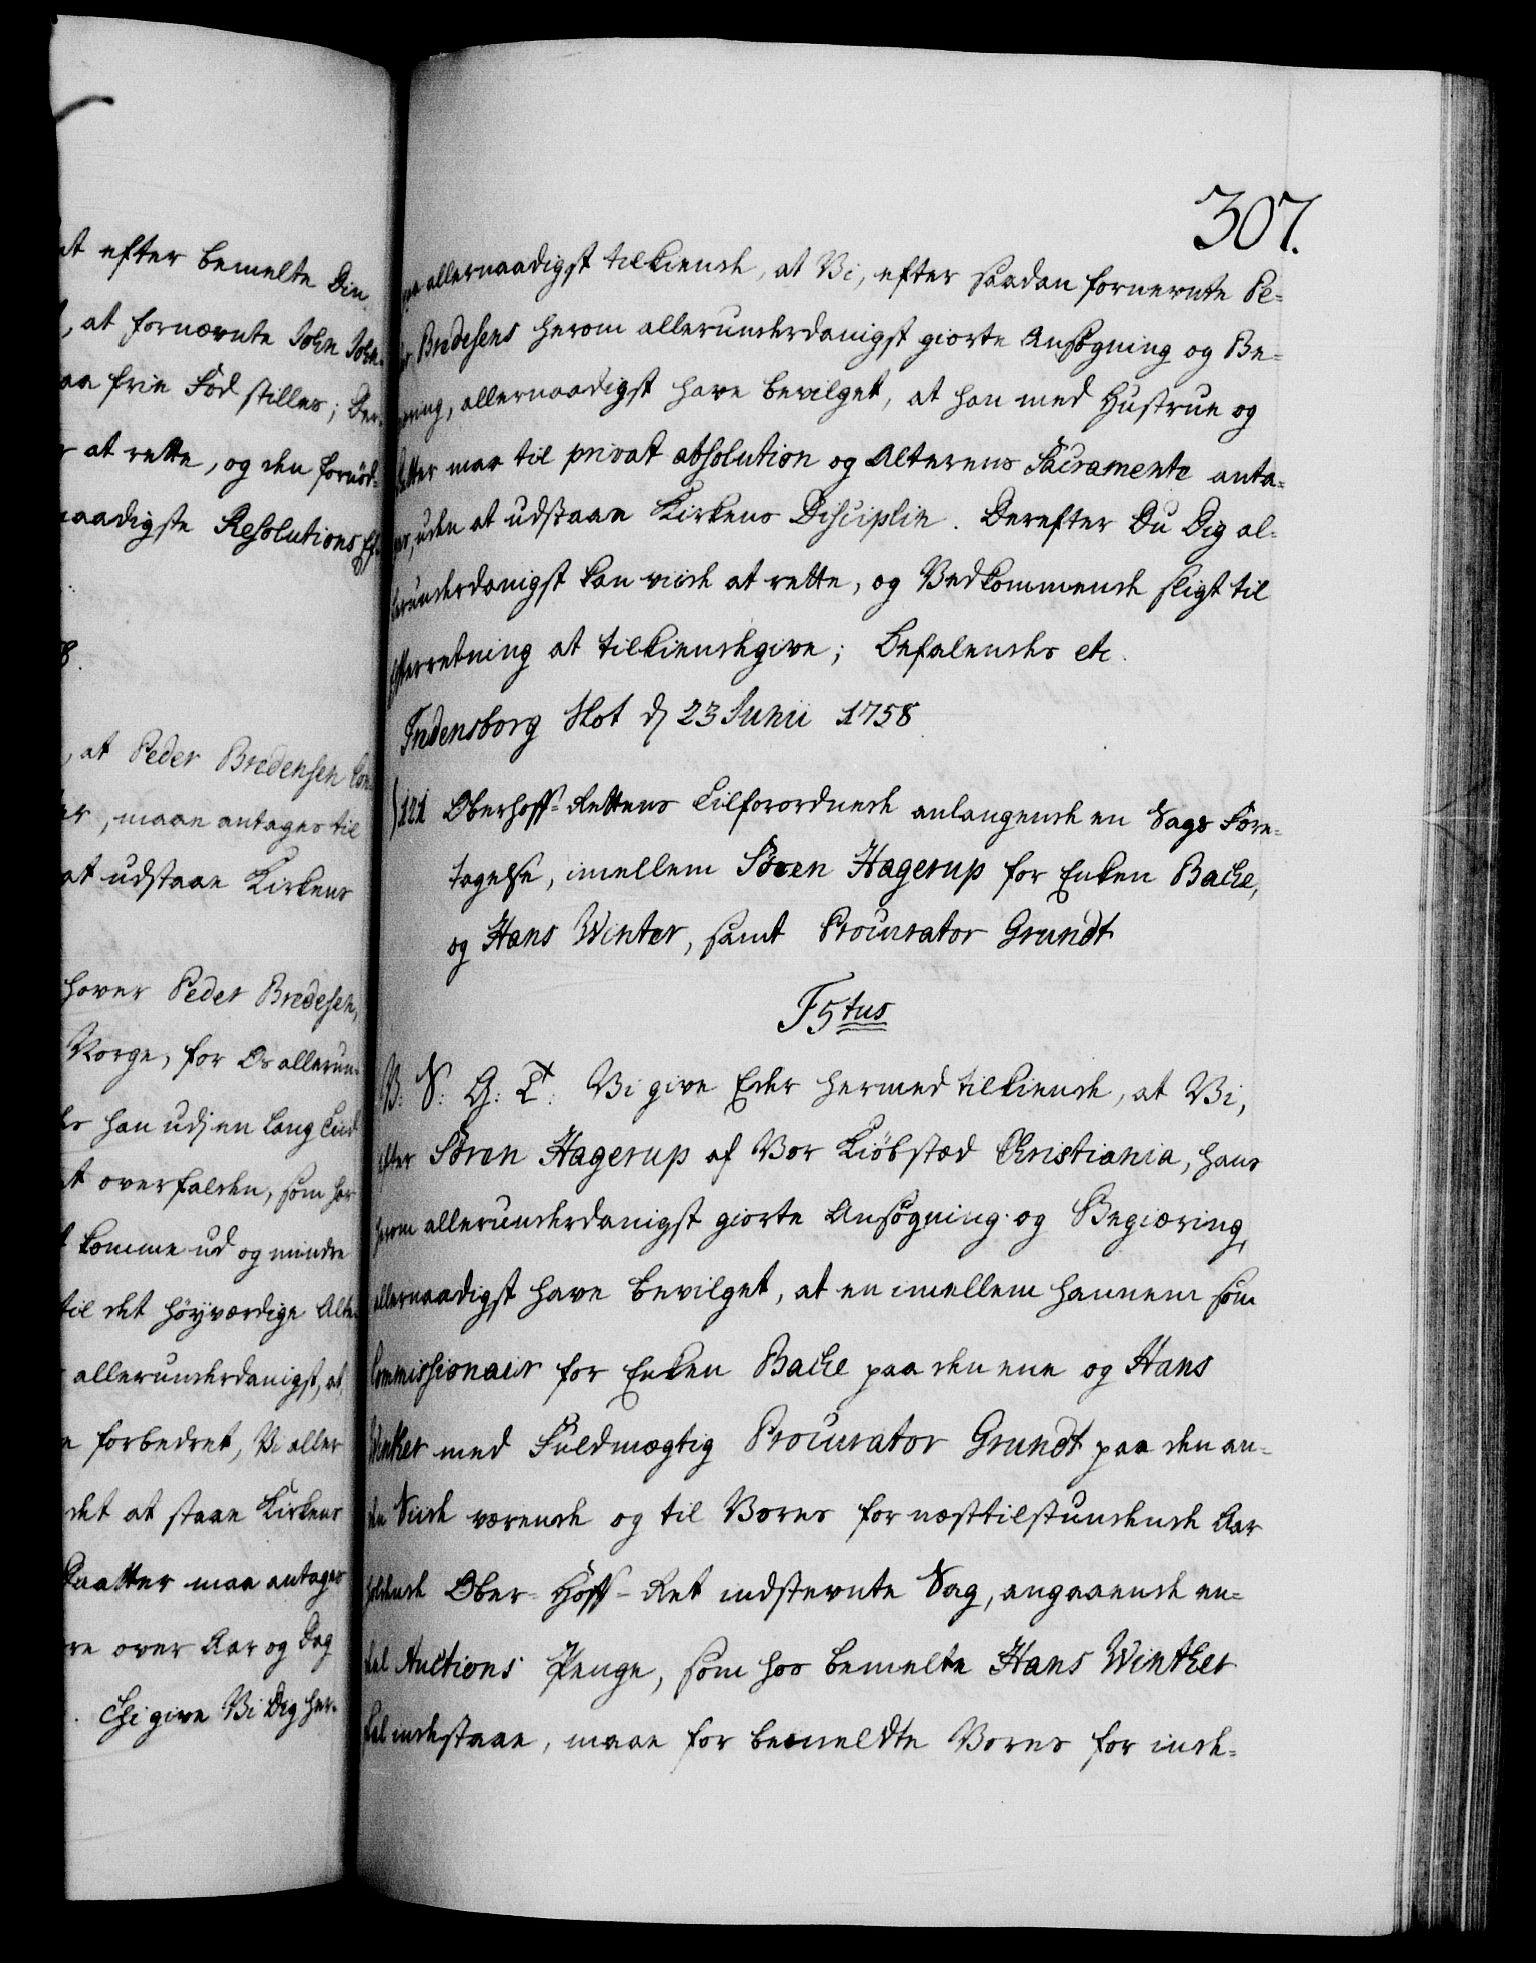 nt efter bemelte Din
, at fornævnte John John-
aa frie Fod stilles; Der-
at rette, og den fornød-
naadigste Resolutions
8.
, at Peder Bredensen
er, maae antages til
at udstaae Kirkens
hover Peder Bredesen,
Norge, for Os allerun-
han udj en lang Tiid
at overfalden, som har
komme ud og mindre
til det höyværdige Alte-
allerunderdanigst, at
forbedret, Vi aller
det at staae Kirkens
Daatter maa antages
re over Aar og Dag
Thi give Vi Dig her-
307.
allernaadigst tilkiende, at Vi, efter saadan fornevnte Pe-
der Bredesens herom allerunderdanigst giorte Ansøgning og Be-
giering, allernaadigst have bevilget, at han med Hustrue og
Datter maa til privat absolution og Alterens Sacramente anta-
ges, uden at udstaae Kirkens Disciplin. Derefter Du Dig al-
lerunderdanigst kan viide at rette, og Vedkommende sligt til
Efterretning at tilkiendegive; Befalendes etc.
Fredensborg Slot d 23 Junii 1758
121 Oberhoff-Rettens Tilforordnede anlangende en Sags Fore-
tagelse, imellem Søren Hagerup for Enken Bache,
og Hans Winter, samt Procurator Grundt
F5tus
V: S: G: T: Vi give Eder hermed tilkiende, at Vi,
efter Søren Hagerup af Vor Kiöbstæd Christiania, hans
herom allerunderdanigst giorte Ansøgning og Begiæring,
allernaadigst have bevilget, at en imellem hannem som
Commissionair for Enken Bache paa den ene og Hans
Winther med Fuldmægtig Procurator Grundt paa den an-
den Siide værende og til Vores for næsttilstundende Aar
holdende Ober-Hoff-Ret indstevnte Sag, angaaende en-
deel Auctions Penge, som hos bemelte Hans Winther
skal indestaae, maae for bemeldte Vores for inde-